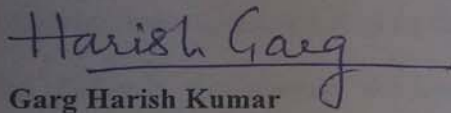 Harish Garg
Garg Harish Kumar